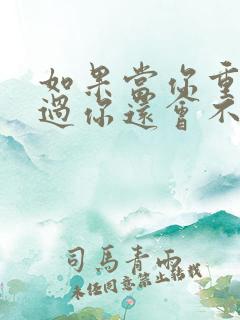 如果當你重
過你還會不
司馬青雨
未經同意禁止轉載